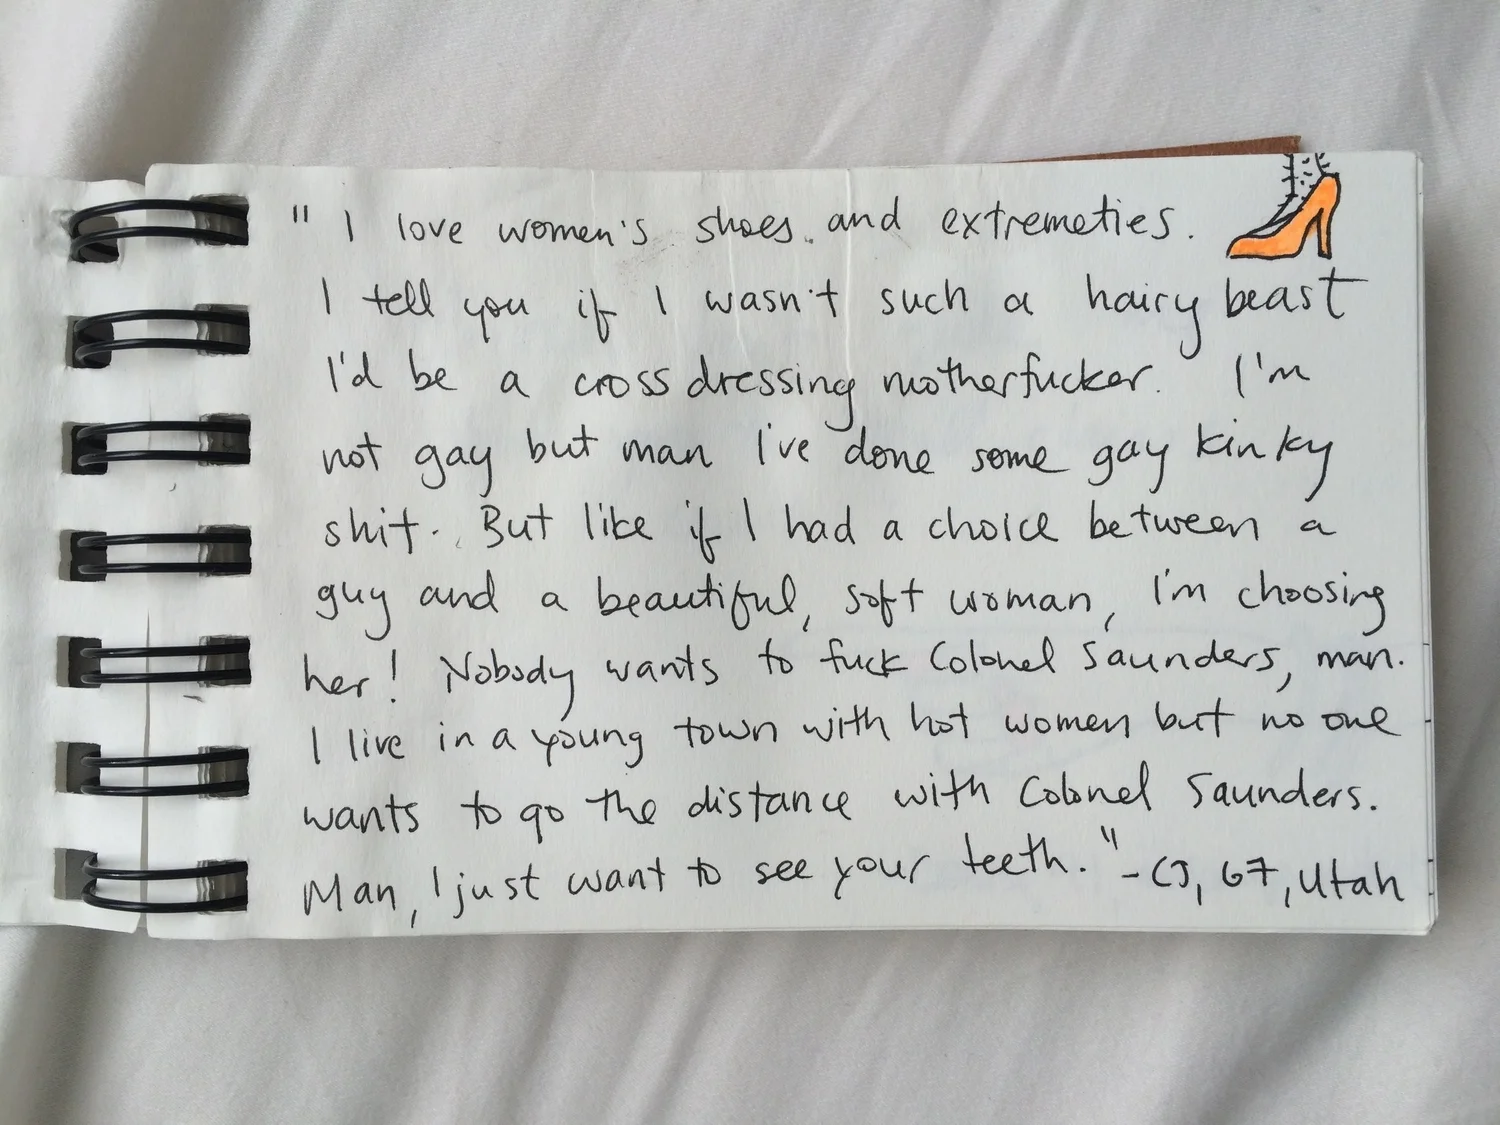 " I love women's shoes and extremeties.
I tell you if I wasn't such a hairy beast
I'd be a cross dressing motherfucker. I'm
not gay but man I've done some gay kinky
shit. But like if I had a choice between a
guy and a beautiful, soft woman, I'm choosing
her! Nobody wants to fuck Colonel Saunders, man.
I live in a young town with hot women but no one
wants to go the distance with Colonel Saunders.
Man, I just want to see your teeth." - CJ, 67, Utah